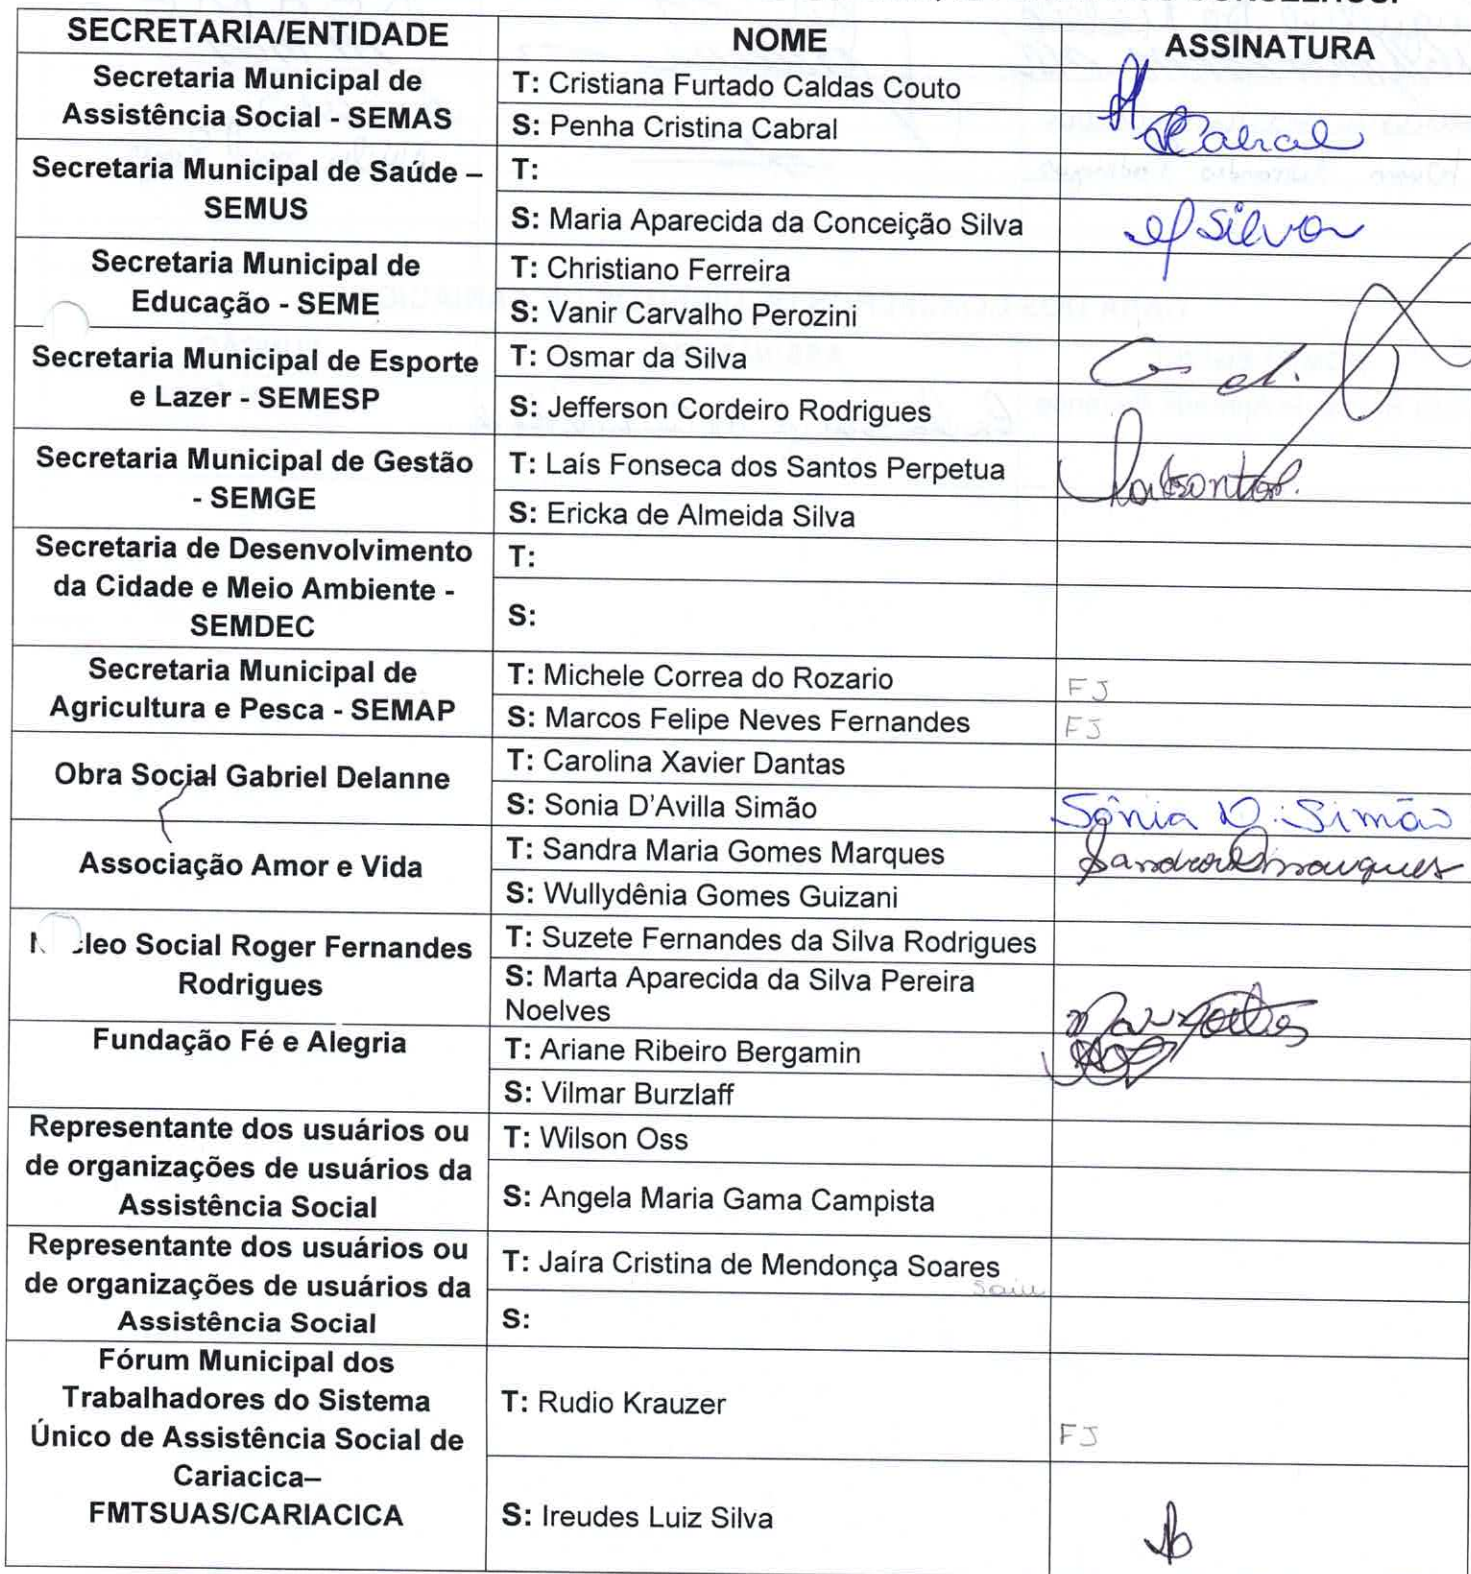 SECRETARIA/ENTIDADE
NOME
ASSINATURA
Secretaria Municipal de
Assistência Social - SEMAS
T: Cristiana Furtado Caldas Couto
S: Penha Cristina Cabral
Cabral
Secretaria Municipal de Saúde –
SEMUS
T:
S: Maria Aparecida da Conceição Silva
Silva
Secretaria Municipal de
Educação - SEME
T: Christiano Ferreira
S: Vanir Carvalho Perozini
Secretaria Municipal de Esporte
e Lazer - SEMESP
T: Osmar da Silva
S: Jefferson Cordeiro Rodrigues
Secretaria Municipal de Gestão
- SEMGE
T: Laís Fonseca dos Santos Perpetua
S: Ericka de Almeida Silva
Secretaria de Desenvolvimento
da Cidade e Meio Ambiente -
SEMDEC
T:
S:
Secretaria Municipal de
Agricultura e Pesca - SEMAP
T: Michele Correa do Rozario
FJ
S: Marcos Felipe Neves Fernandes
FJ
Obra Social Gabriel Delanne
T: Carolina Xavier Dantas
S: Sonia D'Avilla Simão
Sônia D. Simão
Associação Amor e Vida
T: Sandra Maria Gomes Marques
S: Wullydênia Gomes Guizani
Social Roger Fernandes
Rodrigues
T: Suzete Fernandes da Silva Rodrigues
S: Marta Aparecida da Silva Pereira
Noelves
Fundação Fé e Alegria
T: Ariane Ribeiro Bergamin
S: Vilmar Burzlaff
Representante dos usuários ou
de organizações de usuários da
Assistência Social
T: Wilson Oss
S: Angela Maria Gama Campista
Representante dos usuários ou
de organizações de usuários da
Assistência Social
T: Jaíra Cristina de Mendonça Soares
Saiu
S:
Fórum Municipal dos
Trabalhadores do Sistema
Único de Assistência Social de
Cariacica–
FMTSUAS/CARIACICA
T: Rudio Krauzer
FJ
S: Ireudes Luiz Silva